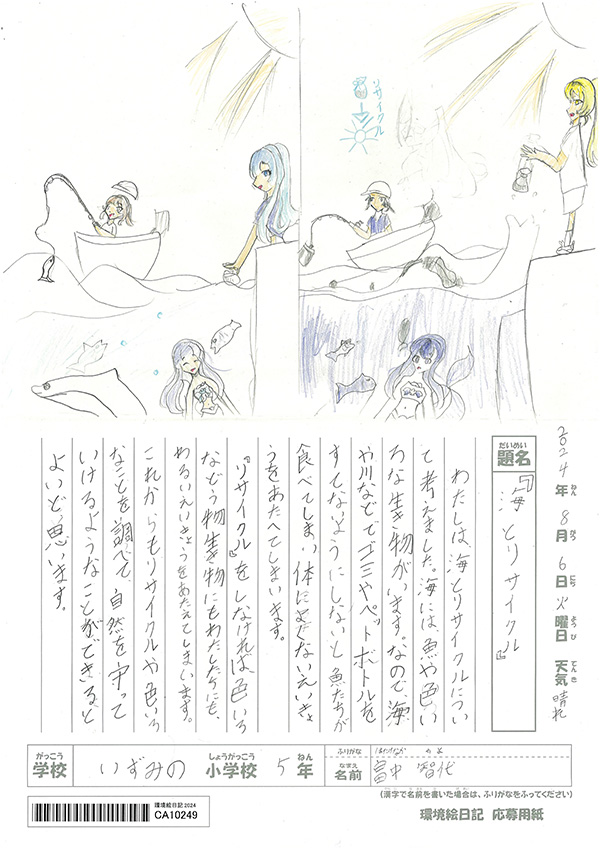 リサイクル
2024年ねん8月がつ6日にち火曜日ようび 天気てんき 晴れ
題名だいめい
『海とリサイクル』
わたしは、海とリサイクルについ
て考えました。海には、魚や色い
ろな生き物がいます。なので、海
や川などでゴミやペットボトルを
すてないようにしないと魚たちが
食べてしまい体によくないえいきょ
うをあたへてしまいます。
『リサイクル』をしなければ、色いろ
などう物生き物にもわたしたちにも、
わるいえいきょうをあたえてしまいます。
これからもリサイクルや色いろ
なことを調べて、自然を守って
いけるようなことができると
よいと、思います。
学校がっこう いずみの 小学校しょうがっこう 5年ねん
ふりがな
名前なまえ 畠中 智代
(漢字で名前を書いた場合は、ふりがなをふってください)
環境絵日記2024
CA10249
環境絵日記 応募用紙